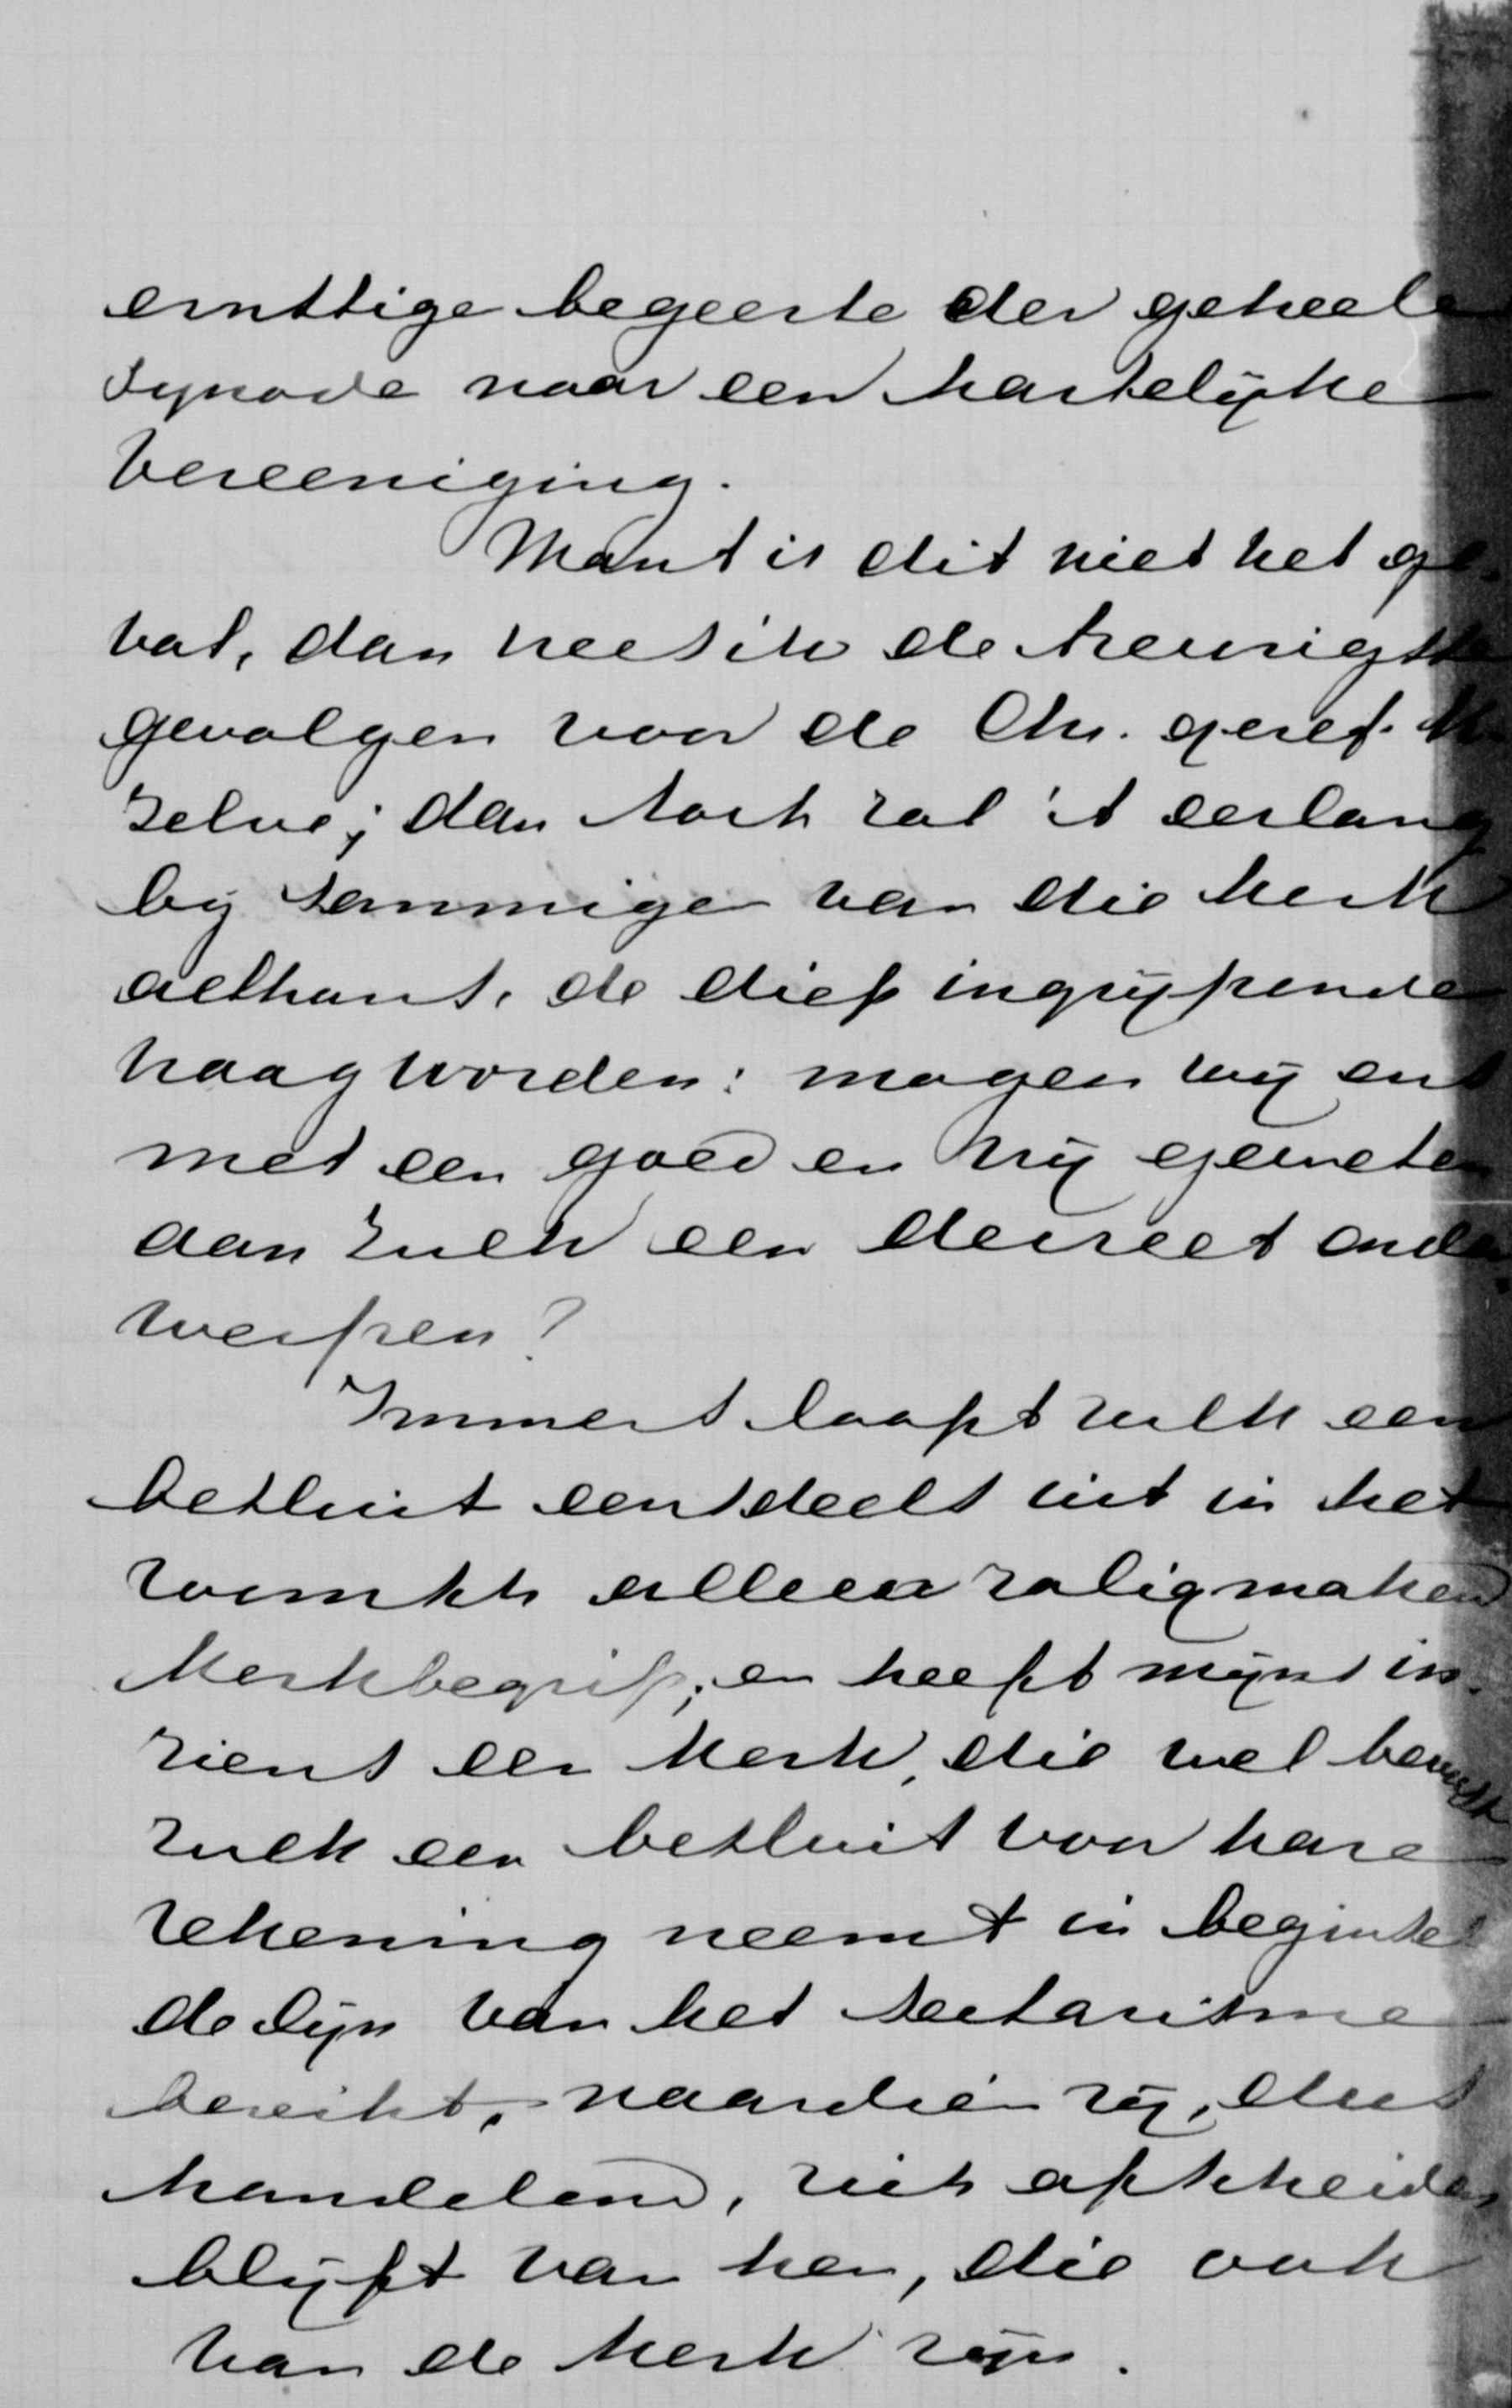 ernstige begeerte der geheele
Synode naar een hartelijke
Vereeniging.
Want is dit niet het ge-
val, dan vrees ik de treurigste
gevolgen voor de Chr. geref. K.
zelve; dan toch zal 't eerlang
bij sommigen van die kerk
althans, de diep ingrijpende
vraag worden: mogen wij ons
met een goed en vrij geweten
aan zulk een decreet onder
werpen?
Immers loopt zulk een
besluit eensdeels uit in het
roomsch alleen zaligmakend
Kerkbegrip; en heeft mijns in-
ziens een Kerk, die wel bewust
zulk een besluit voor hare
rekening neemt in beginsel
de lijn van het sectarisme
bereikt, naardien zij, dus
handelend, zich afscheiden
blijft van hen, die ook
van de Kerk zijn.